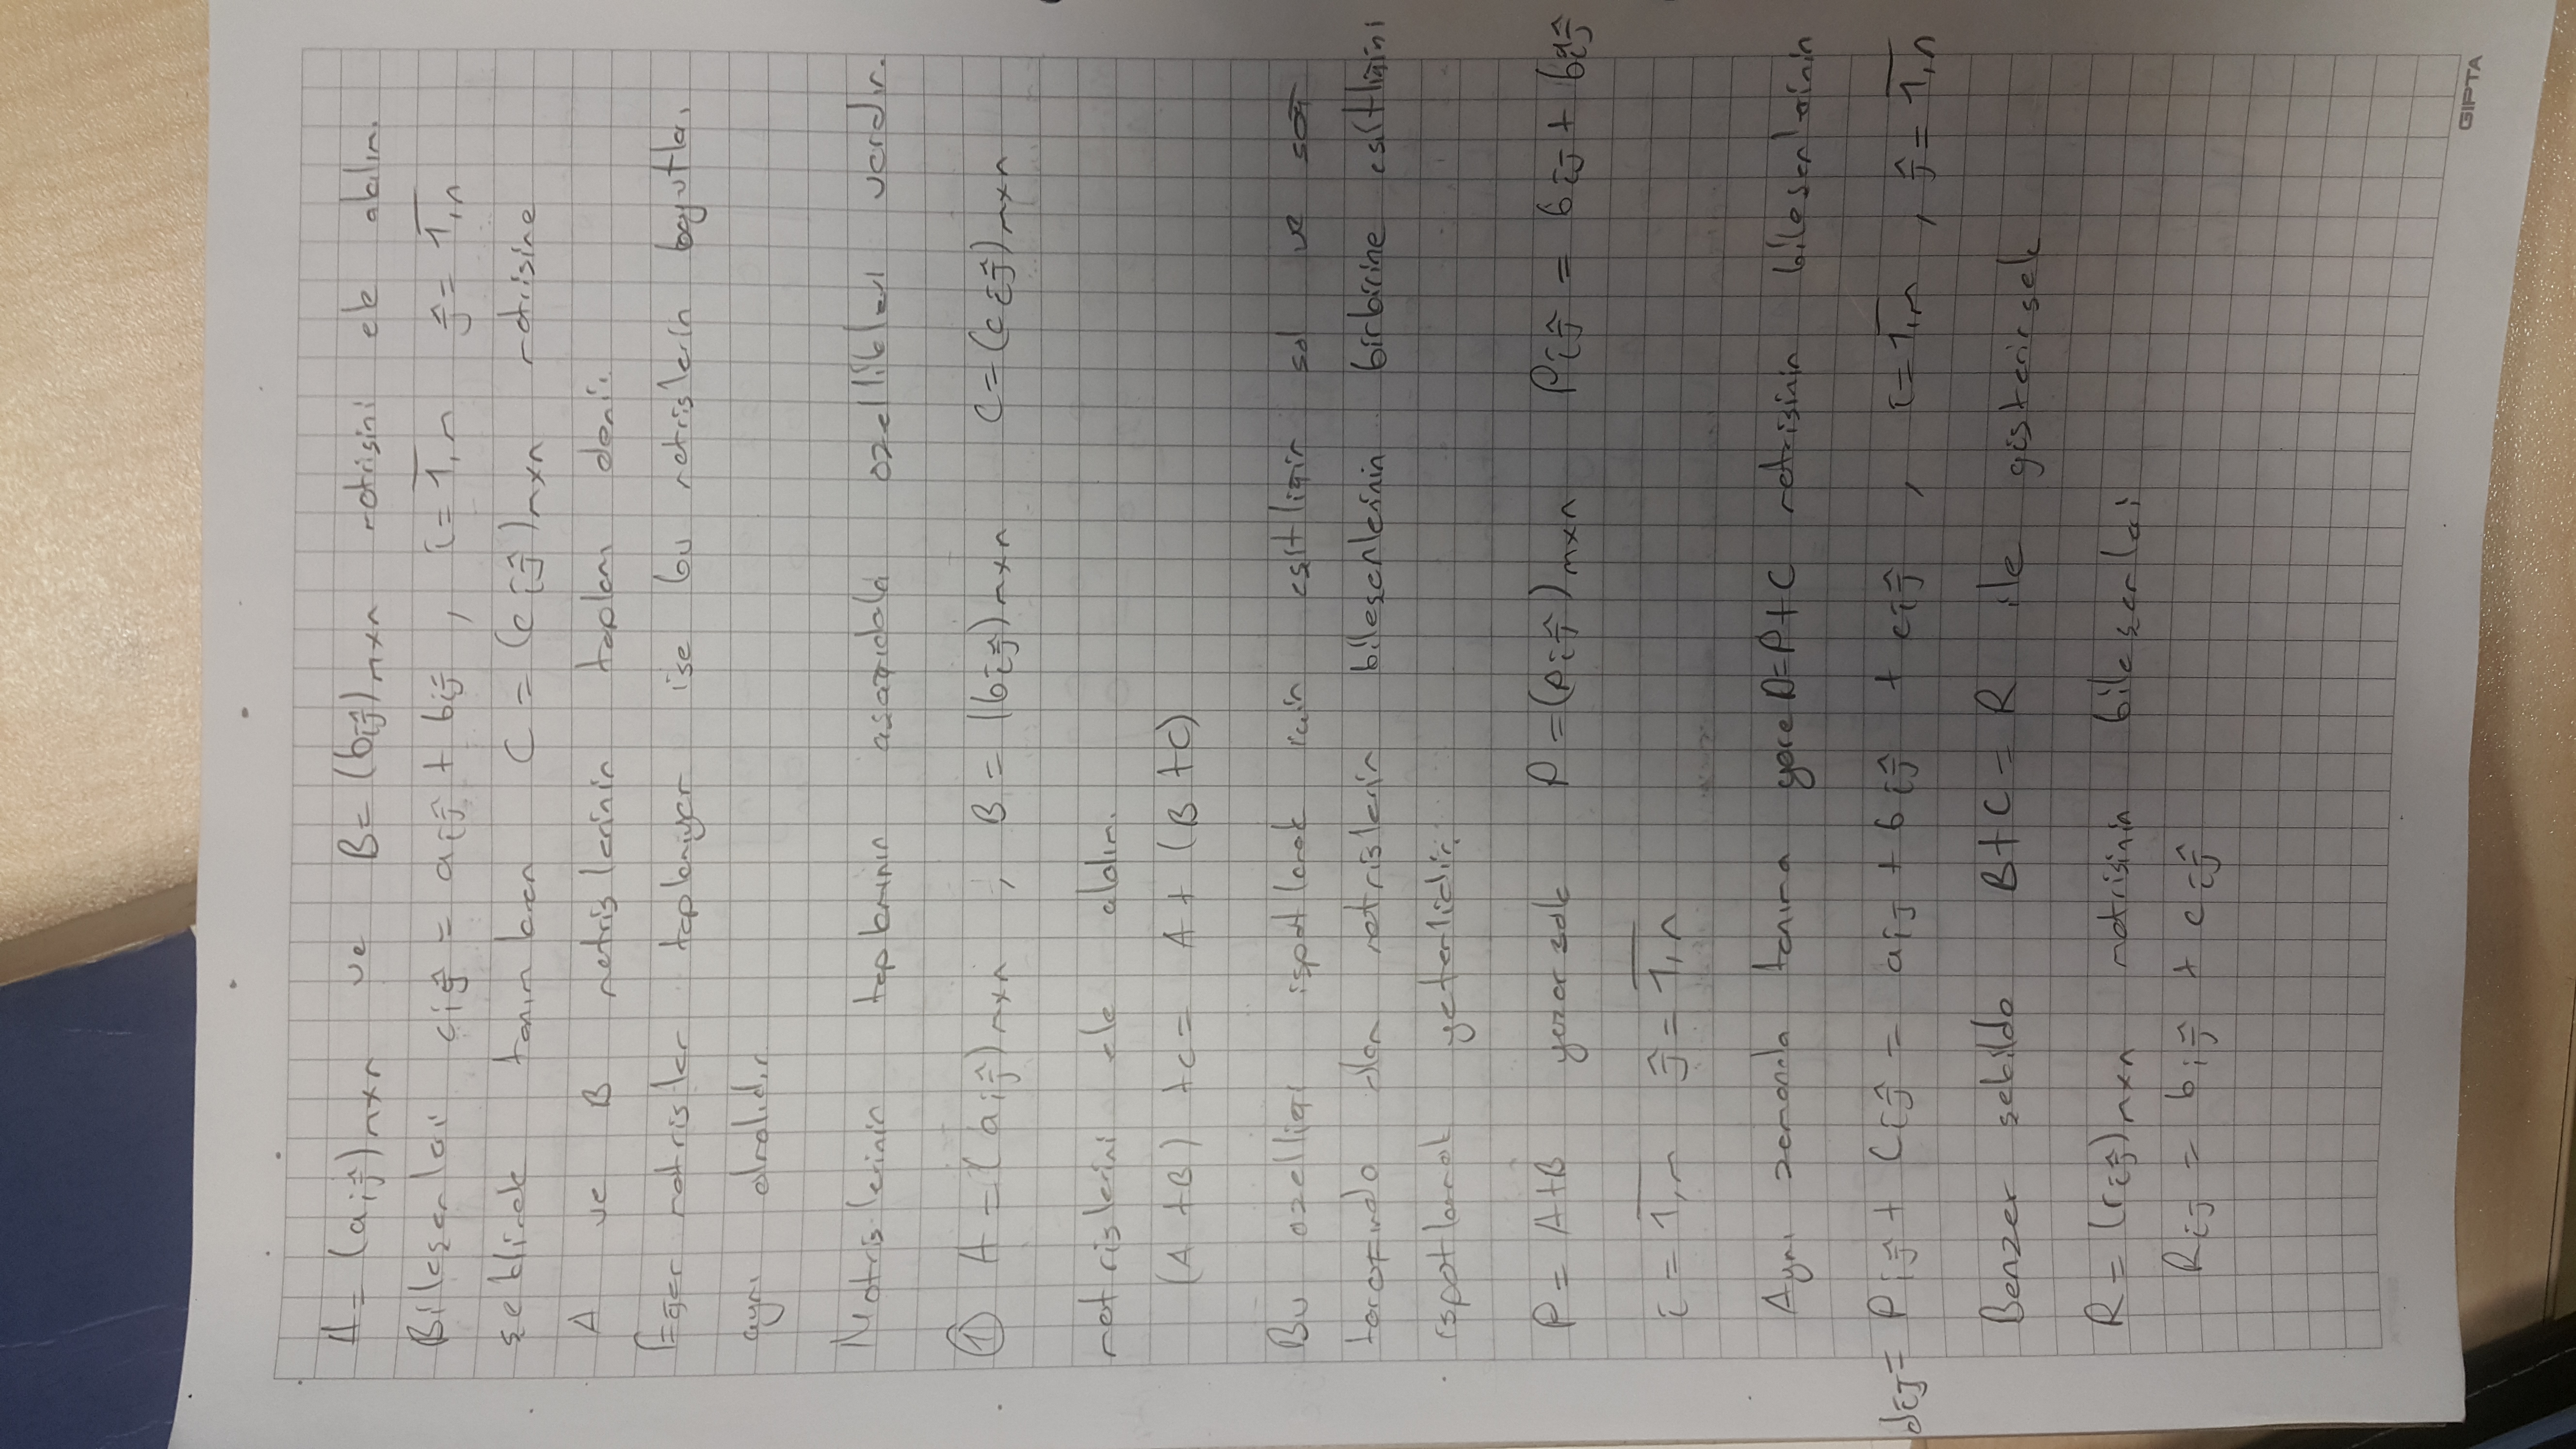 A = (aij)mxn ve B = (bij)mxn matrisini ele alalım.
Bileşenleri cij = aij + bij , i = 1,m j = 1,n
şeklinde tanımlanan C = (cij)mxn matrisine
A ve B matrislerinin toplam denir.
Eğer matrisler toplanıyor ise bu matrislerin boyutları
aynı olmalıdır
Matrislerinin toplamının aşağıdaki özellikleri vardır.
① A = (aij)mxn , B = (bij)mxn C = (cij)mxn
matrislerini ele alalım.
(A + B) + C = A + (B + C)
Bu özelliği ispatlamak için eşitliğin sol ve sağ
tarafında olan matrislerin bileşenlerinin birbirine eşitliğini
ispatlamak yeterlidir.
P = A+B yazarsak P = (Pij)mxn Pij = bij + bij
i = 1,m j = 1,n
Aynı zamanda tanıma göre D = P+C matrisinin bileşenlerinin
dij = Pij + Cij = aij + bij + cij , i = 1,m , j = 1,n
Benzer şekilde B + C = R ile gösterirsek
R = (rij)mxn matrisinin bileşenleri
Rij = bij + cij
GIPTA